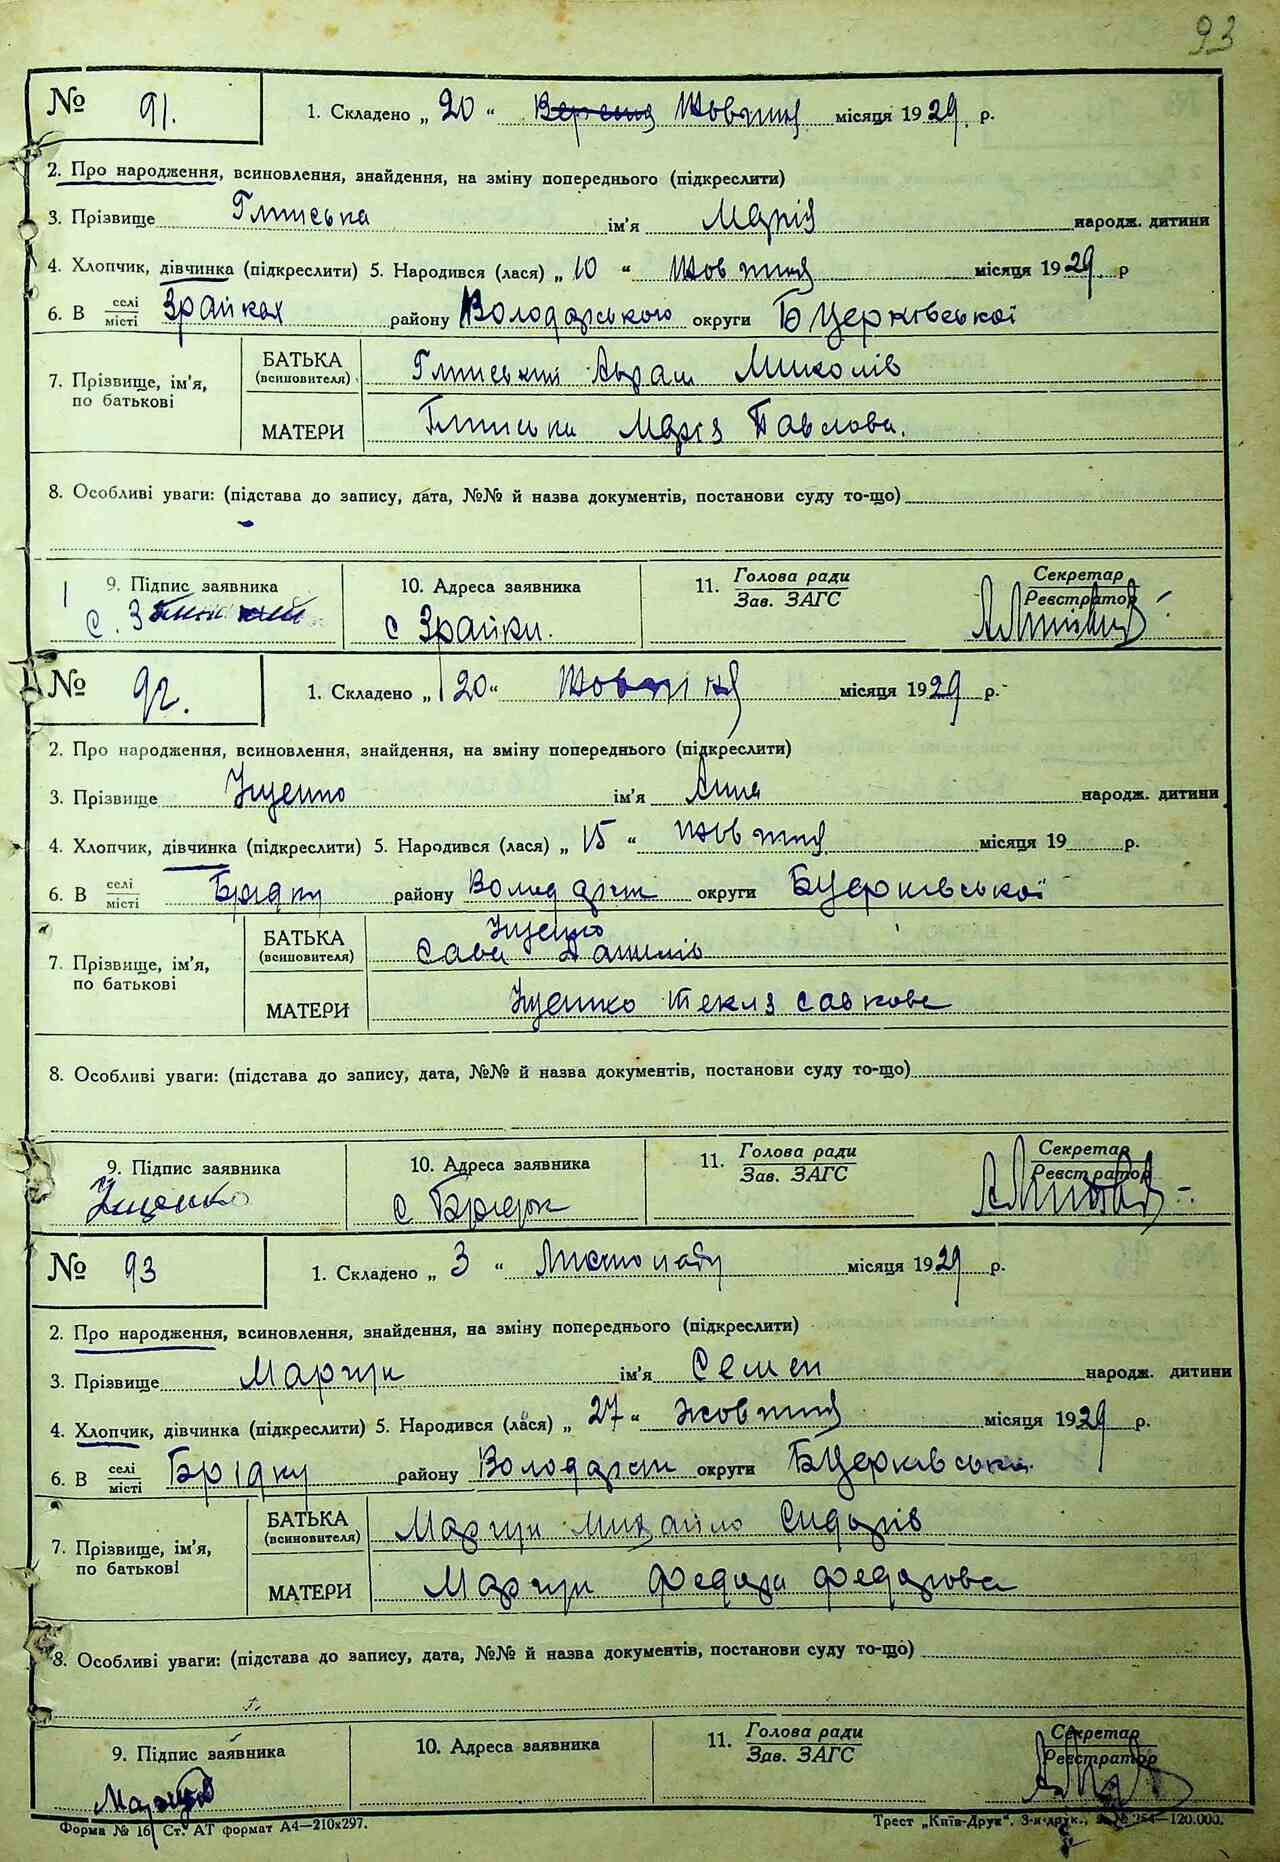 93
№ 91. 1. Складено „ 20 “ Вересня Жовтня місяця 1929 р.
2. Про народження, всиновлення, знайдення, на зміну попереднього (підкреслити)
3. Прізвище ім'я Марія народж. дитини
4. Хлопчик, дівчинка (підкреслити) 5. Народився (лася) „ 10 “ Жовтня місяця 1929 р
6. В селі місті Зрайках району Володарського округи БЦерківської
7. Прізвище, ім'я, по батькові
БАТЬКА (всиновителя) Миколів
МАТЕРИ Марія Павлова.
8. Особливі уваги: (підстава до запису, дата, №№ й назва документів, постанови суду то-що)
9. Підпис заявника 10. Адреса заявника 11. Голова ради Зав. ЗАГС Секретар Реєстратор
с Зрайки.
№ 92. 1. Складено „ 20 “ Жовтня місяця 1929 р.
2. Про народження, всиновлення, знайдення, на зміну попереднього (підкреслити)
3. Прізвище Іщенко ім'я Анна народж. дитини
4. Хлопчик, дівчинка (підкреслити) 5. Народився (лася) „ 15 “ Жовтня місяця 19 р.
6. В селі місті району округи БЦерківської
7. Прізвище, ім'я, по батькові
БАТЬКА (всиновителя) Іщенко Сава Данилів
МАТЕРИ Іщенко Текля Савкова
8. Особливі уваги: (підстава до запису, дата, №№ й назва документів, постанови суду то-що)
9. Підпис заявника 10. Адреса заявника 11. Голова ради Зав. ЗАГС Секретар Реєстратор
Іщенко с
№ 93 1. Складено „ 3 “ Листопаду місяця 1929 р.
2. Про народження, всиновлення, знайдення, на зміну попереднього (підкреслити)
3. Прізвище ім'я Семен народж. дитини
4. Хлопчик, дівчинка (підкреслити) 5. Народився (лася) „ 27 “ жовтня місяця 1929 р.
6. В селі місті району округи БЦерківська
7. Прізвище, ім'я, по батькові
БАТЬКА (всиновителя) Михайло Сидорів
МАТЕРИ Федора Федорова
8. Особливі уваги: (підстава до запису, дата, №№ й назва документів, постанови суду то-що)
9. Підпис заявника 10. Адреса заявника 11. Голова ради Зав. ЗАГС Секретар Реєстратор
Форма № 16 Ст. АТ формат А4—210x297. Трест „Київ-Друк“. 3-я друк., № 254—120.000.